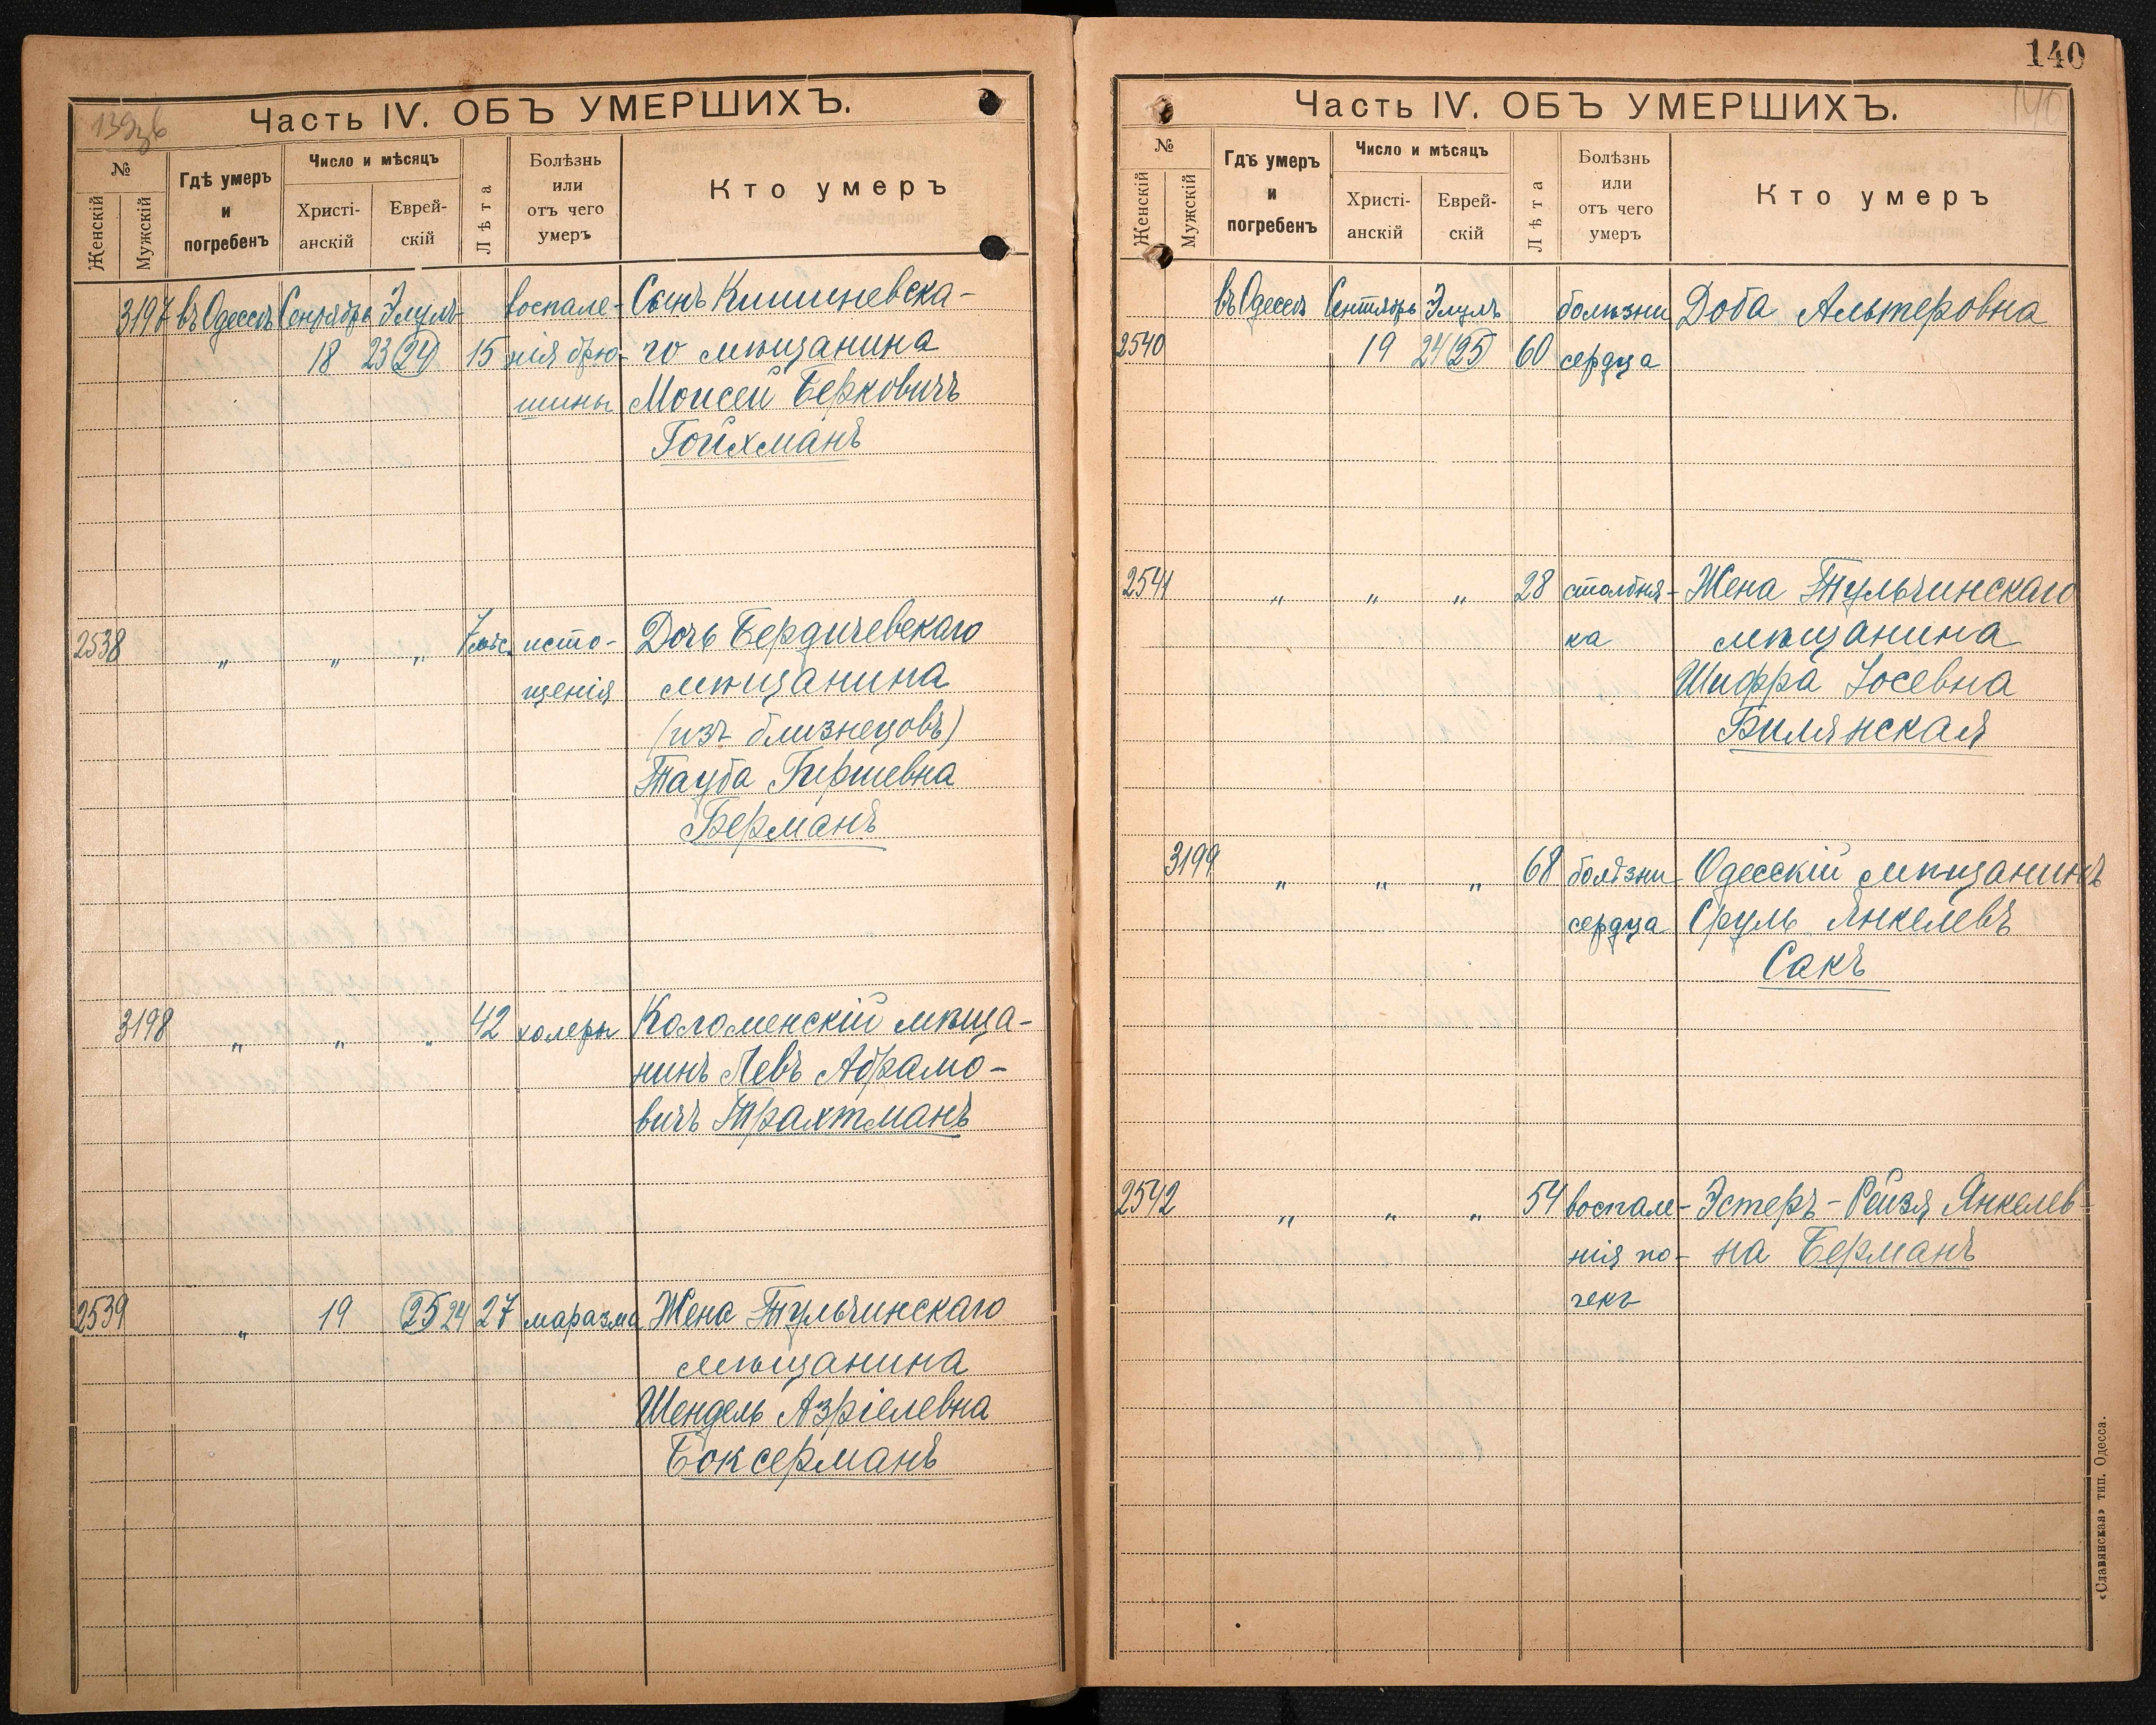 139зв
Часть IV. ОБЪ УМЕРШИХЪ.
№
Женскій
Мужскій
Гдѣ умеръ
и
погребенъ
Число и мѣсяцъ
Христі-
анскій
Еврей-
скій
Лѣта
Болѣзнь
или
отъ чего
умеръ
Кто умеръ
3197 въ Одессѣ Сентябрь Элулъ воспале- Сынъ Кишиневска-
18 23 (24) 15 нія брю- го мѣщанина
шины Моисей Берковичъ
Гойхманъ
2538 " " " 7 мѣс. исто- Дочь Бердичевскаго
щенія мѣщанина
(изъ близнецовъ)
Тауба Гершевна
Берманъ
3198 " " " 42 холеры Коломенскій мѣща-
нинъ Левъ Абрамо-
вичъ Трахтманъ
2539 " 19 (25) 24 27 маразма Жена Тульчинскаго
мѣщанина
Шендель Азріелевна
Боксерманъ
140
140
Часть IV. ОБЪ УМЕРШИХЪ.
№
Женскій
Мужскій
Гдѣ умеръ
и
погребенъ
Число и мѣсяцъ
Христі-
анскій
Еврей-
скій
Лѣта
Болѣзнь
или
отъ чего
умеръ
Кто умеръ
въ Одессѣ Сентябрь Элулъ болѣзни Доба Альтеровна
2540 19 24 (25) 60 сердца
2541 " " " 28 столбня- Жена Тульчинскаго
ка мѣщанина
Шифра Іосевна
Билянская
3199 " " " 68 болѣзни Одесскій мѣщанинъ
сердца Сруль Янкелевъ
Сакъ
2542 " " " 54 воспале- Эстеръ-Рейзя Янкелев-
нія по- на Берманъ
чекъ
«Славянская» тип. Одесса.